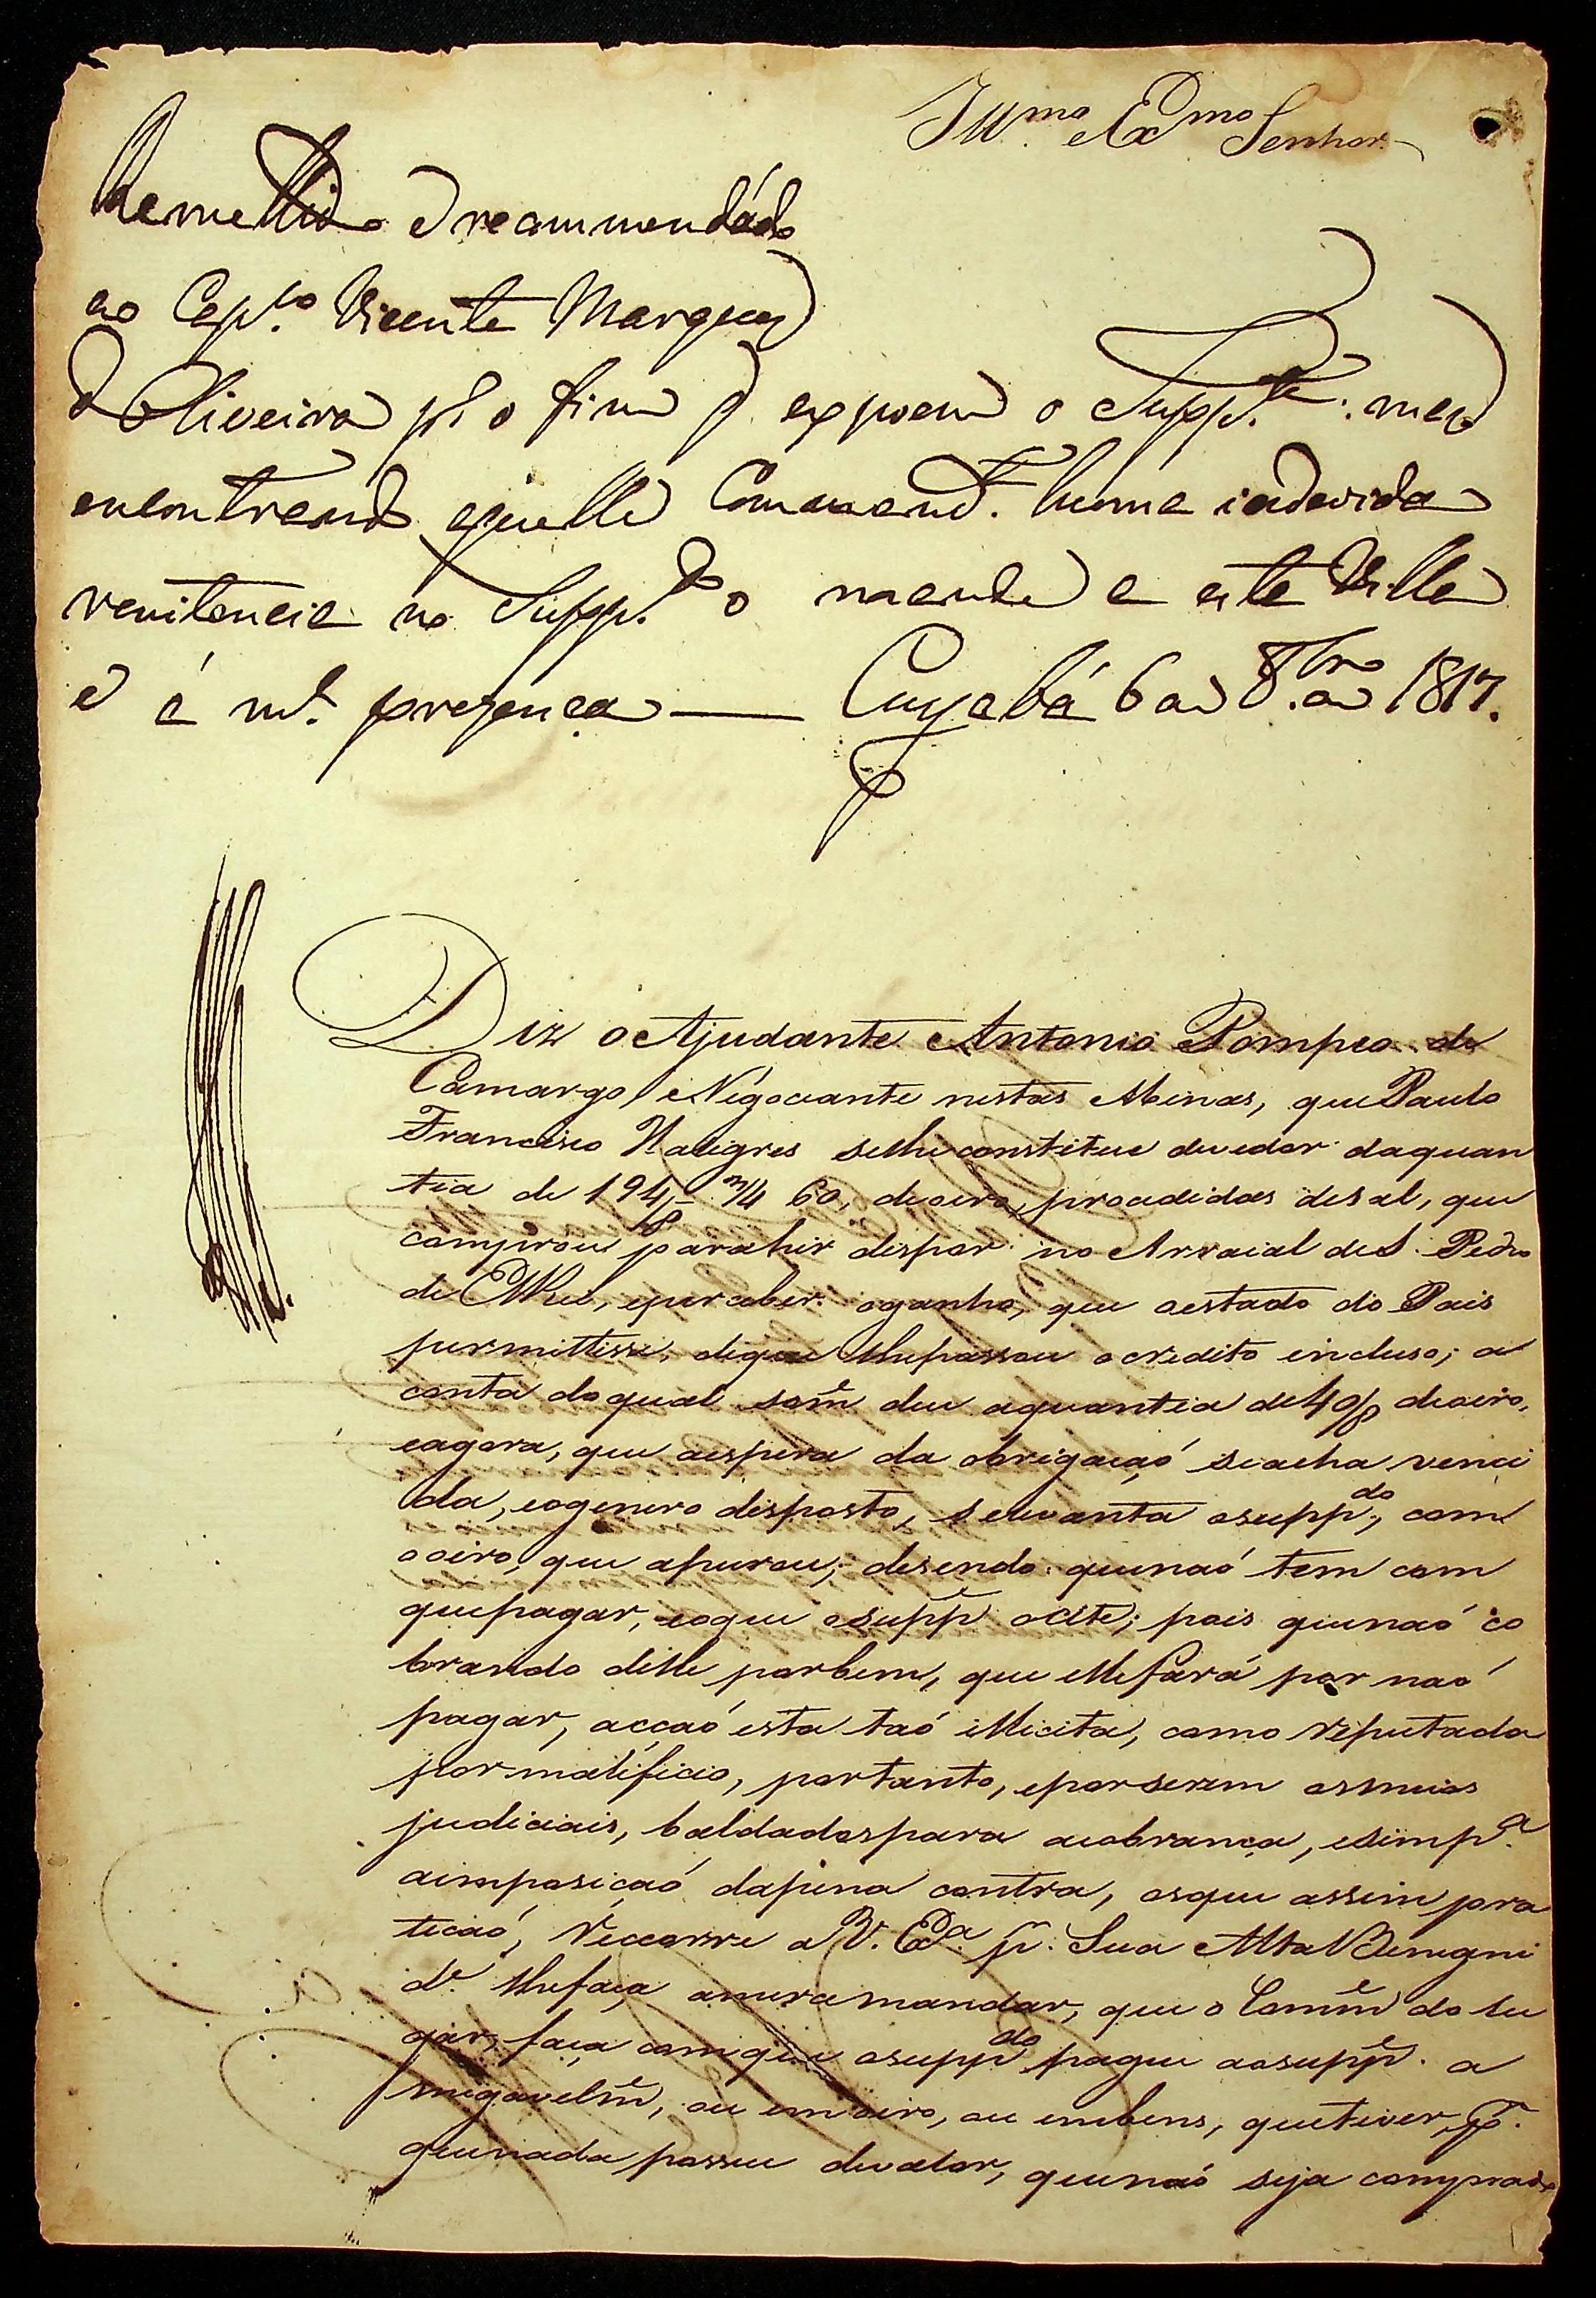 Ill.mo e Ex.mo Senhor
Remettido e recommendádo
ao Cap.to Vicente Marques
d Oliveira p.a o fim q expoem o Supp.te: mas
encontrand aquelle Comand.te huma indevida
renitencia no Supp.do o mande a esta Villa
e á m.a prezença — Cuyabá 6 de 8.bro de 1817.
Diz o Ajudante Antonio Pompeo de
Camargo Negociante nestas Minas, que Paulo
Francisco se lhe constitue devedor daquan
tia de 194/8 3/4 60, de oiro, procedidas desal, que
comprou parahir dispor no Arraial de S. Pedro
de ElRei, eperceber oganho, que oestado do Pais
permittisse, deque lhepassou ocredito incluso; a
conta doqual som.e deu aquantia de 40/8 deoiro,
eagora, que aespera da obrigaçaó seacha venci
da, eogenero disposto, selevanta osupp.do, com
ooiro, que apurou; disendo quenaó tem com
quepagar, eoque osupp.e ; pois quenaó co
brando delle porbem, que ellefará por naó
pagar, acçaó esta taó illicita, como reputada
pormalificio, portanto, eporserem osmeios
judiciais, baldadospara acobrança, esimp.a
aimposiçaó dapena contra, osque assim pra
ticaó, Reccorre a V. Ex.a p.a Sua Alta Benigni
d.e lhefaça amerce mandar, que o Com.e do lu
gar, faça comque osupp.do pague aosupp.e a
migavelm.e, ou em oiro, ou embens, quetiver, p.
quenada possue devalor, quenaó seja comprado